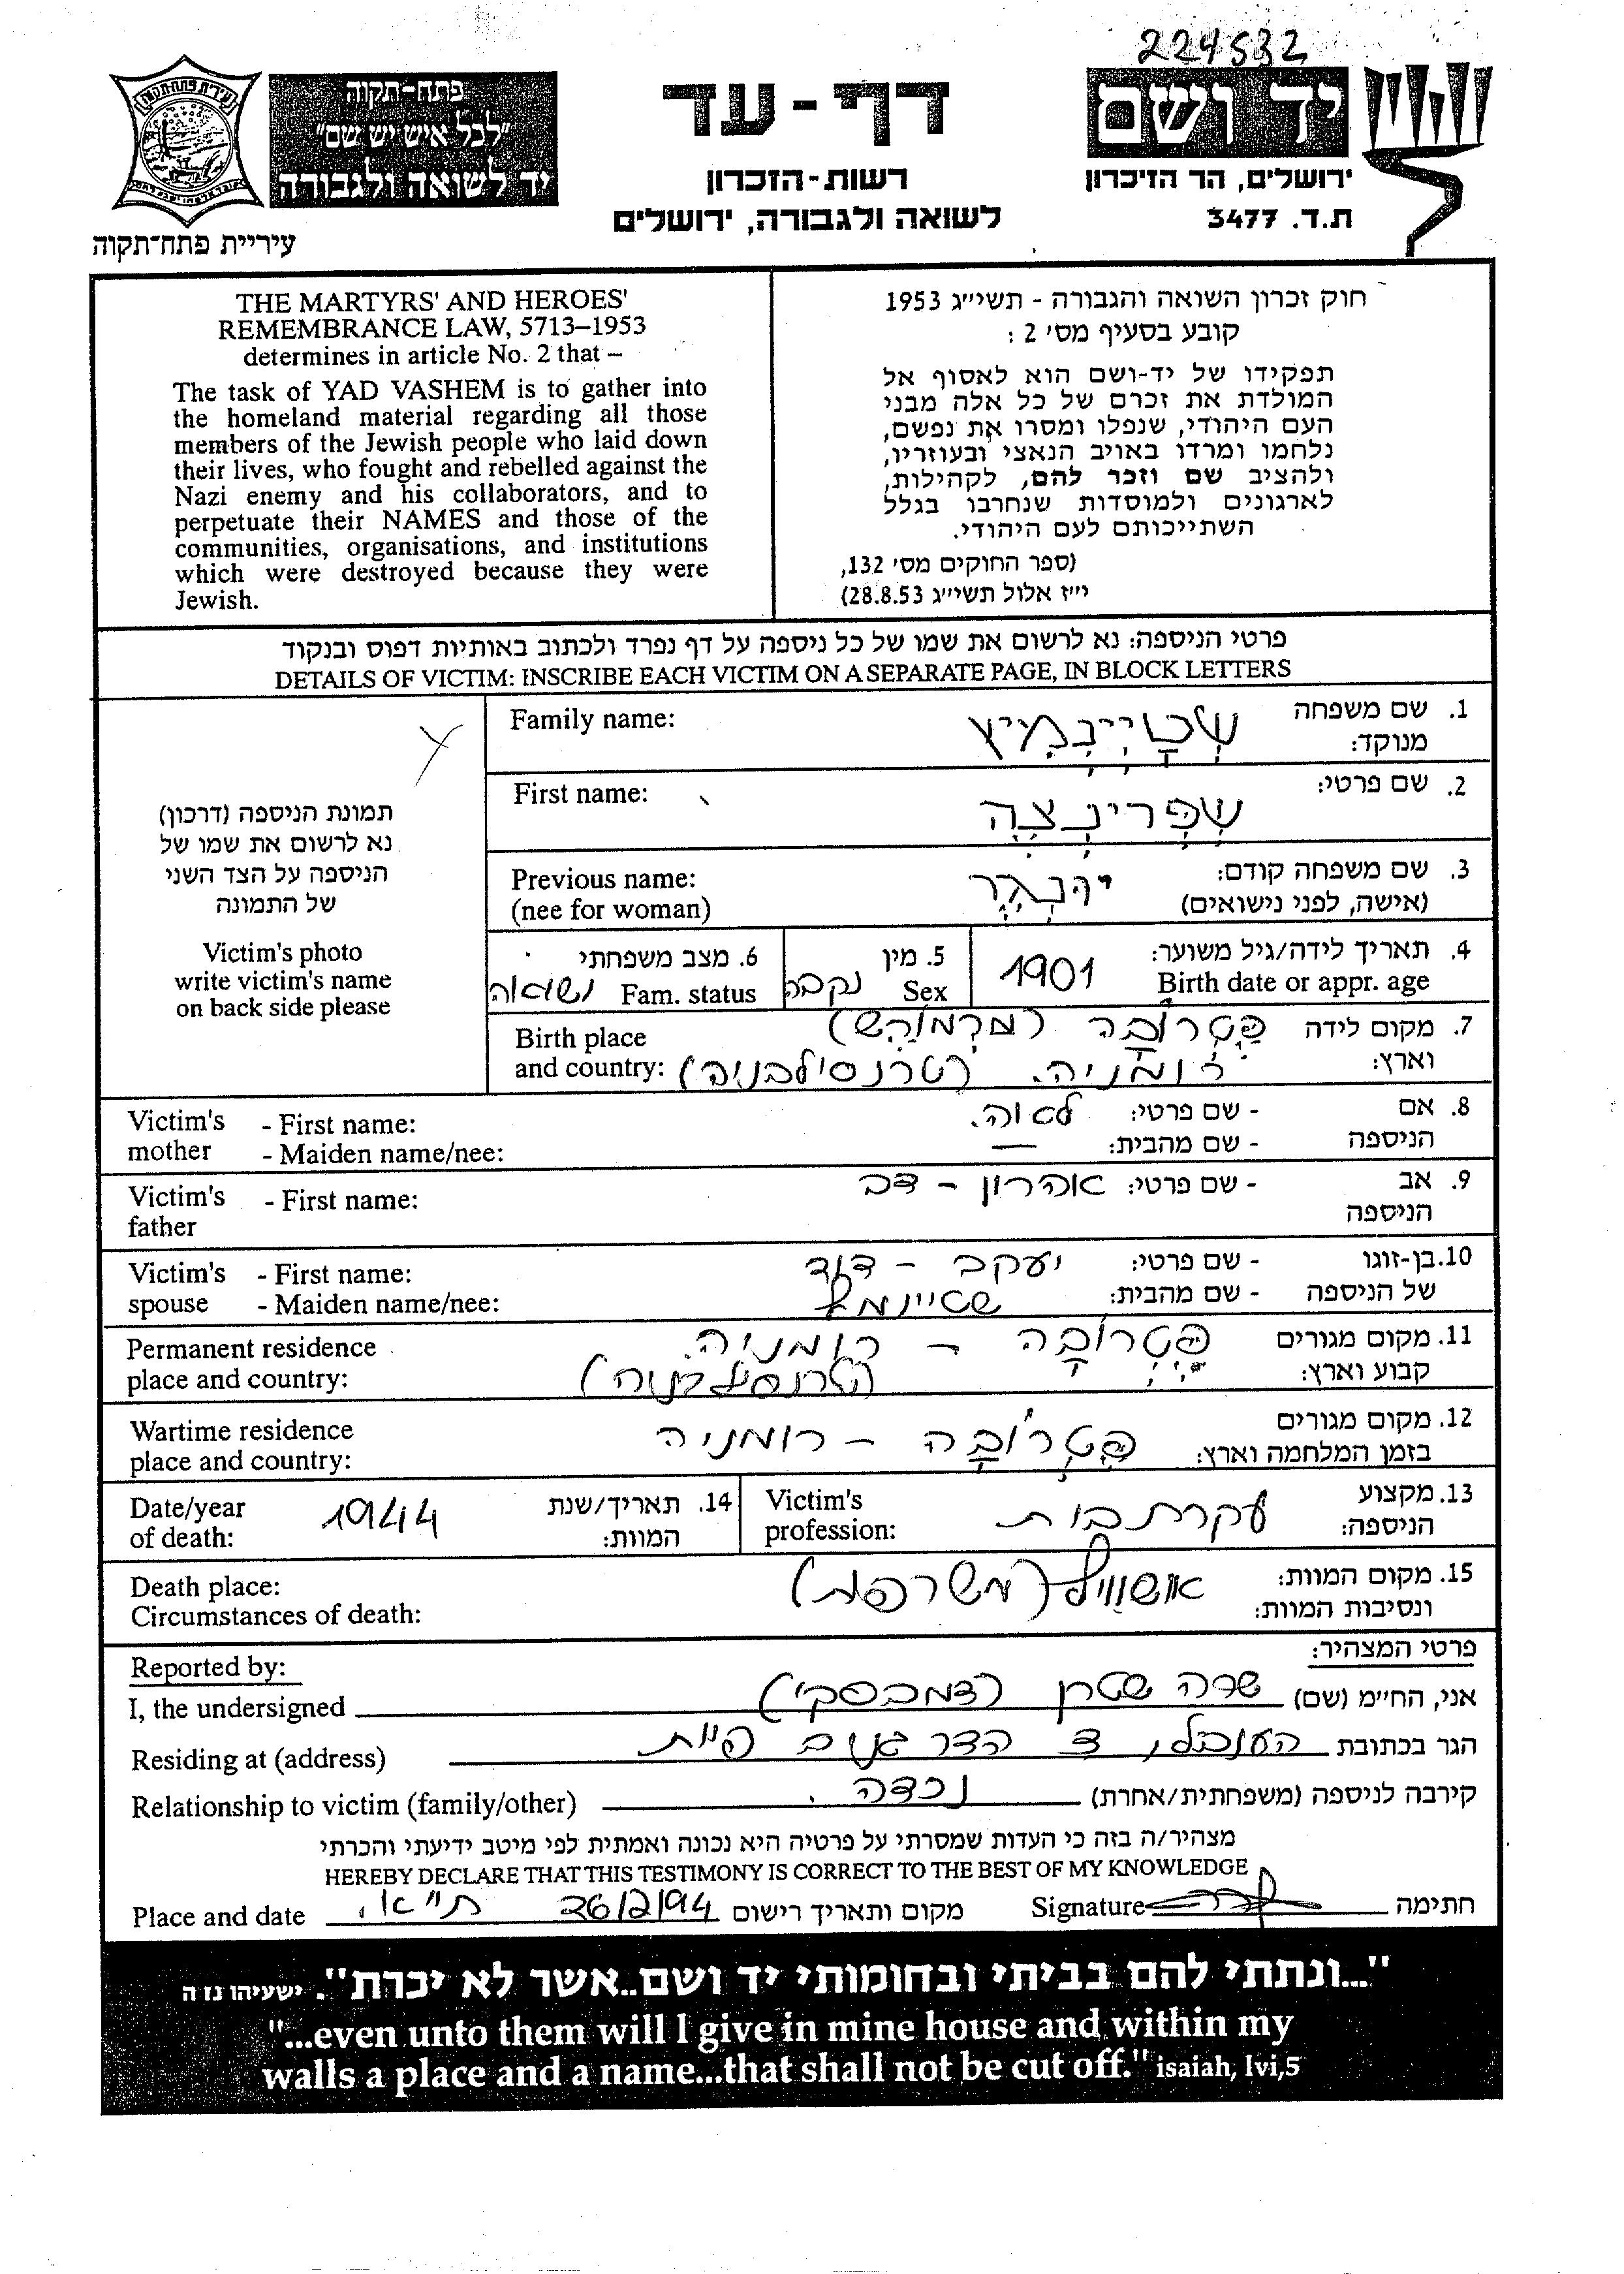 224532
עיריית פתח-תקוה
פתח-תקוה
"לכל איש יש שם"
יד לשואה ולגבורה
עיריית פתח-תקוה
דף-עד
רשות-הזכרון
לשואה ולגבורה, ירושלים
יד ושם
ירושלים, הר הזיכרון
ת.ד. 3477
THE MARTYRS' AND HEROES'
REMEMBRANCE LAW, 5713–1953
determines in article No. 2 that –
The task of YAD VASHEM is to gather into
the homeland material regarding all those
members of the Jewish people who laid down
their lives, who fought and rebelled against the
Nazi enemy and his collaborators, and to
perpetuate their NAMES and those of the
communities, organisations, and institutions
which were destroyed because they were
Jewish.
חוק זכרון השואה והגבורה - תשי״ג 1953
קובע בסעיף מס׳ 2 :
תפקידו של יד-ושם הוא לאסוף אל
המולדת את זכרם של כל אלה מבני
העם היהודי, שנפלו ומסרו את נפשם,
נלחמו ומרדו באויב הנאצי ובעוזריו,
ולהציב שם וזכר להם, לקהילות,
לארגונים ולמוסדות שנחרבו בגלל
השתייכותם לעם היהודי.
(ספר החוקים מס׳ 132,
י״ז אלול תשי״ג 28.8.53)
פרטי הניספה: נא לרשום את שמו של כל ניספה על דף נפרד ולכתוב באותיות דפוס ובנקוד
DETAILS OF VICTIM: INSCRIBE EACH VICTIM ON A SEPARATE PAGE, IN BLOCK LETTERS
תמונת הניספה (דרכון)
נא לרשום את שמו של
הניספה על הצד השני
של התמונה
Victim's photo
write victim's name
on back side please
1. שם משפחה שטיינמיץ Family name:
מנוקד:
2. שם פרטי: שפרינצה First name:
3. שם משפחה קודם: יונגר Previous name:
(אישה, לפני נישואים) (nee for woman)
4. תאריך לידה/גיל משוער: 1901 5. מין 6. מצב משפחתי
Birth date or appr. age Sex נקבה Fam. status נשואה
7. מקום לידה פטרובה (מרמורש) Birth place
וארץ: רומניה. (טרנסילבניה) and country:
8. אם - שם פרטי: לאוה. Victim's - First name:
הניספה - שם מהבית: — mother - Maiden name/nee:
9. אב - שם פרטי: אהרון - דב Victim's - First name:
הניספה father
10. בן-זוגו - שם פרטי: יעקב - דוד Victim's - First name:
של הניספה - שם מהבית: שטיינמץ spouse - Maiden name/nee:
11. מקום מגורים פטרובה - רומניה. Permanent residence
קבוע וארץ: (טרנסילבניה) place and country:
12. מקום מגורים פטרובה - רומניה Wartime residence
בזמן המלחמה וארץ: place and country:
13. מקצוע Victim's 14. תאריך/שנת 1944 Date/year
הניספה: עקרת בית profession: המוות: of death:
15. מקום המוות: (משרפות) Death place:
ונסיבות המוות: Circumstances of death:
פרטי המצהיר: Reported by:
אני, החי״מ (שם) שרה שטרן (דמבסקי) I, the undersigned
הגר בכתובת הדר גנים פ״ת Residing at (address)
קירבה לניספה (משפחתית/אחרת) נכדה. Relationship to victim (family/other)
מצהיר/ה בזה כי העדות שמסרתי על פרטיה היא נכונה ואמתית לפי מיטב ידיעתי והכרתי
HEREBY DECLARE THAT THIS TESTIMONY IS CORRECT TO THE BEST OF MY KNOWLEDGE
חתימה Signature מקום ותאריך רישום 26/2/94 ת״א. Place and date
"...ונתתי להם בביתי ובחומותי יד ושם..אשר לא יכרת". ישעיהו נו ה
"...even unto them will I give in mine house and within my
walls a place and a name...that shall not be cut off." isaiah, lvi,5